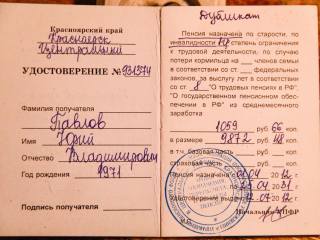 Красноярский край
Красноярск
Центральный
УДОСТОВЕРЕНИЕ № 931374
Фамилия получателя
Павлов
Имя Юрий
Отчество Владимирович
Год рождения 1971
Подпись получателя
Дубликат
Пенсия назначена по старости, по
инвалидности степень ограничения
к трудовой деятельности, по случаю
потери кормильца на членов семьи
в соответствии со ст. федеральных
законов, за выслугу лет в соответствии
со ст. 8 "О трудовых пенсиях в РФ".
"О государственном пенсионном обес-
печении в РФ" из среднемесячного
заработка
1059 руб. 66 коп.
в размере 9872 руб. 48 коп.
в т.ч. базовая часть руб. коп.
страховая часть руб. коп.
Пенсия назначена с 04 2012 г.
по 25.04 2031
Удостоверение выдано 12.04 2012 г.
Начальник УПФР